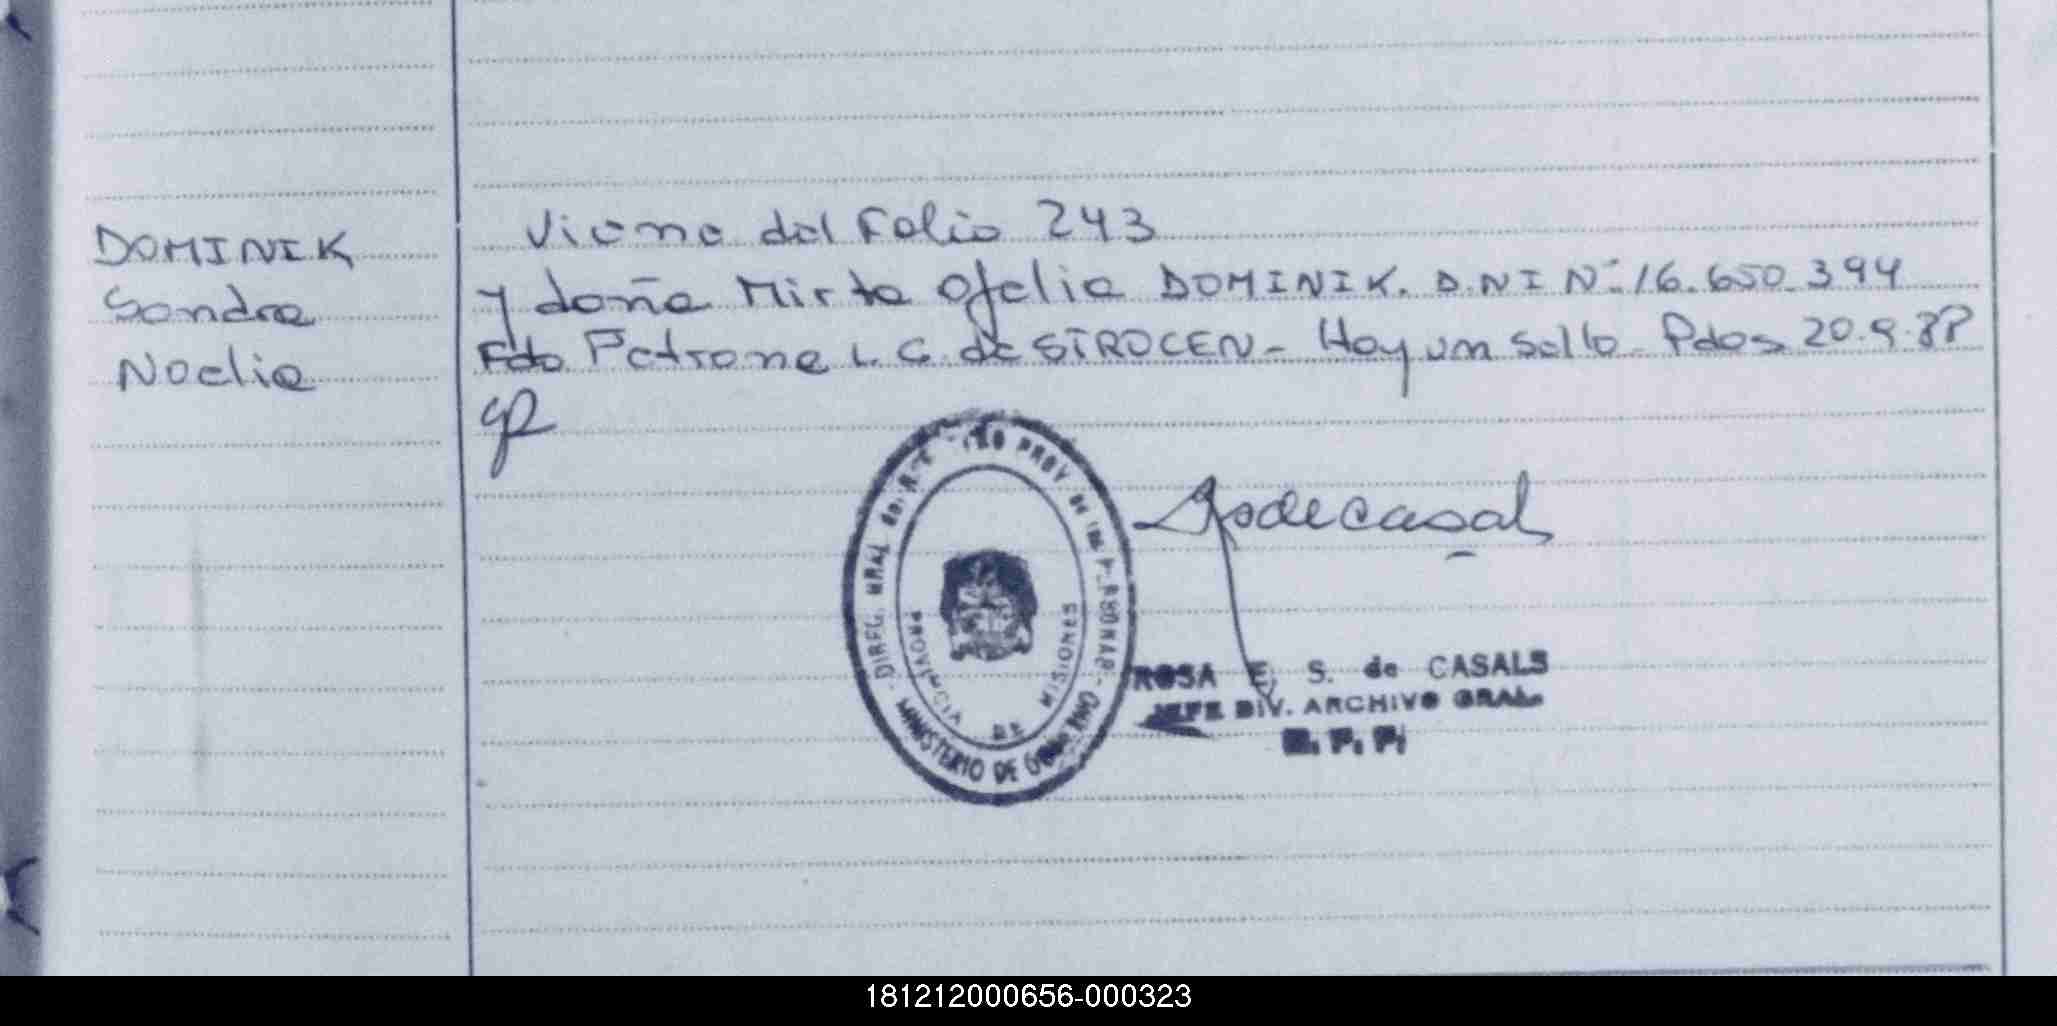 DOMINIK
Sandra
Noelia
Viene del Folio 243
y doña Mirta Ofelia DOMINIK. D.N I Nº 16.650.394
Fdo Petrona L. G. de STROCEN - Hay un sello - Pdas 20.9.88
DIREC. GRAL. DEL REGISTRO PROV. DE LAS PERSONAS
MINISTERIO DE GOBIERNO
PROVINCIA DE MISIONES
ROSA E. S. de CASALS
JEFE DIV. ARCHIVO GRAL.
R. P. P.
181212000656-000323